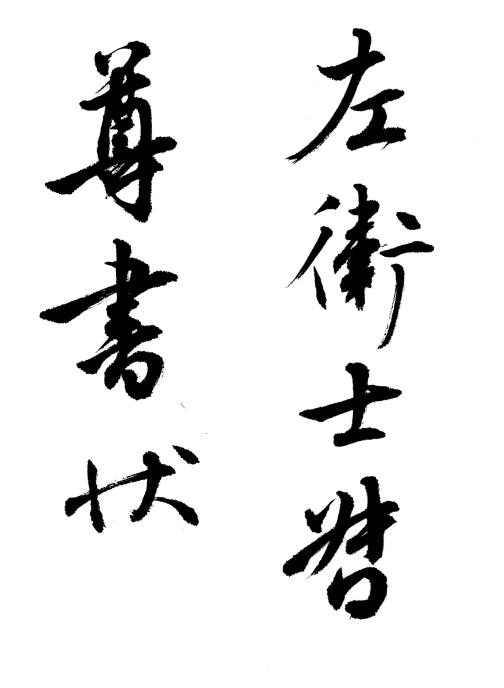 左衛士督
尊書状